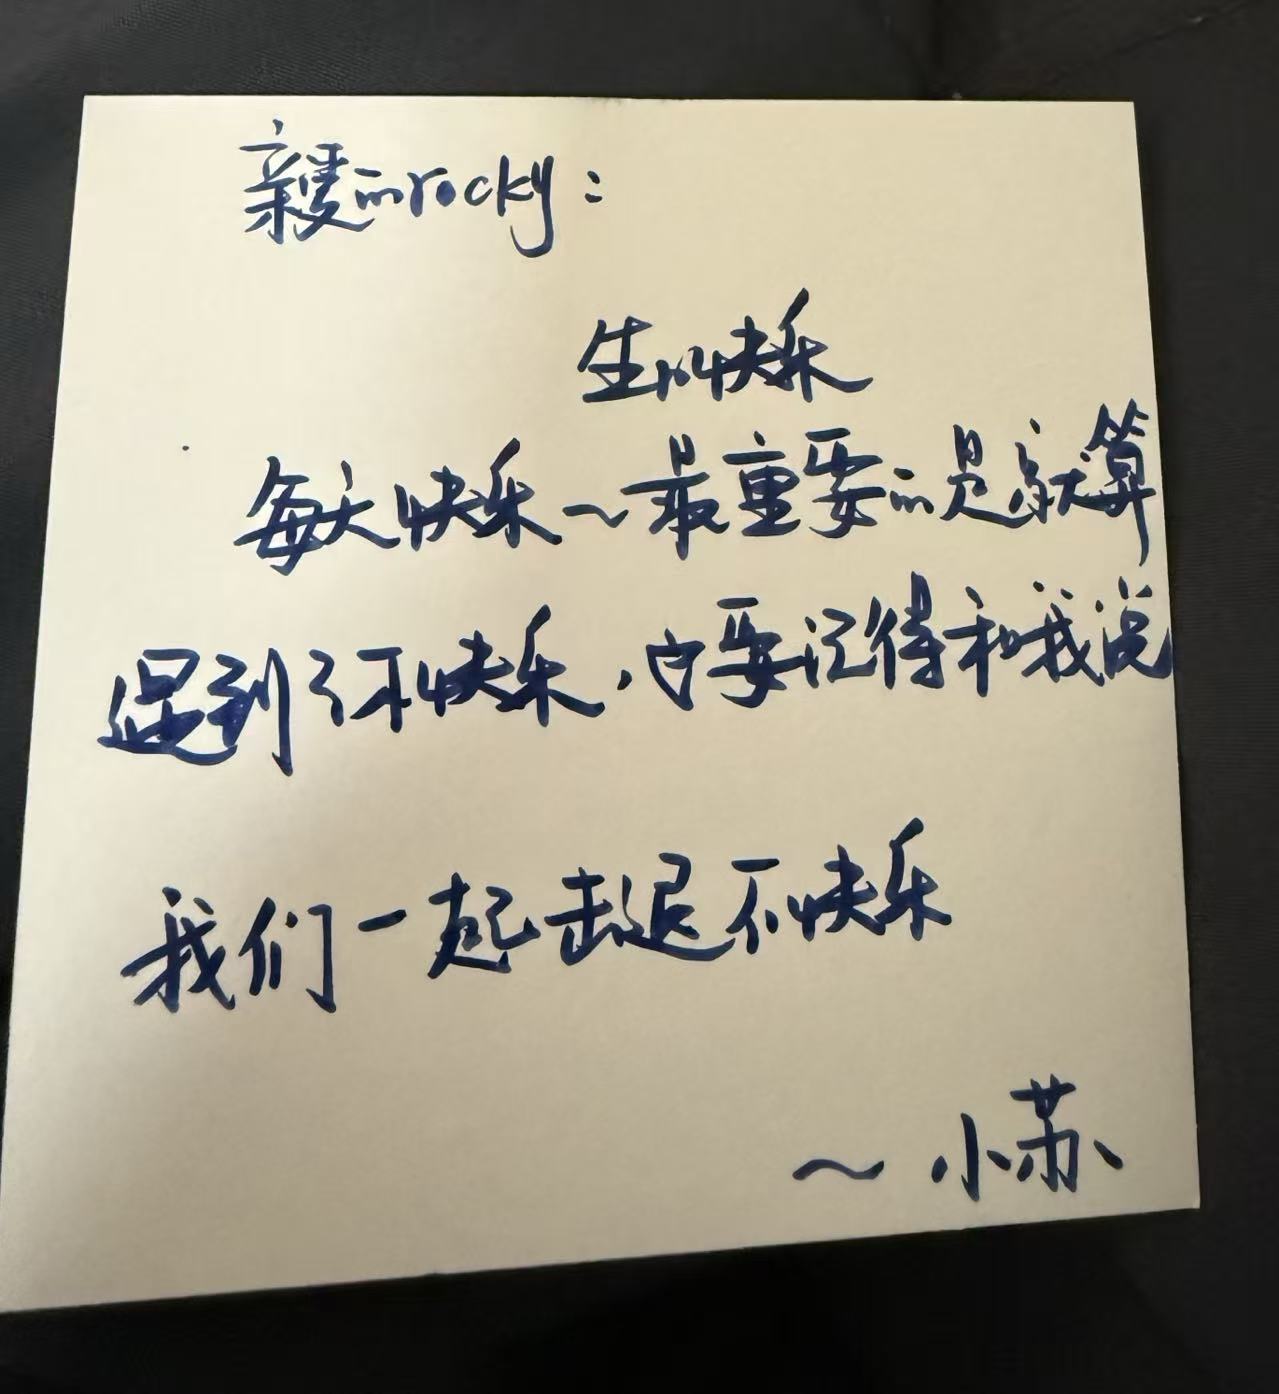 亲爱的rocky：
生日快乐
每天快乐～最重要的是就算
遇到了不快乐，也要记得和我说
我们一起击退不快乐
～小苏